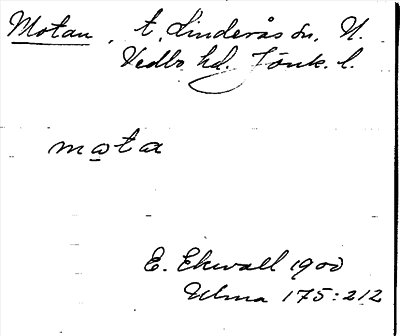 Motan, t. Linderås sn. N.
Vedbo hd. Jönk. l.
mota
E. Ekwall 1900
Ulma 175:212